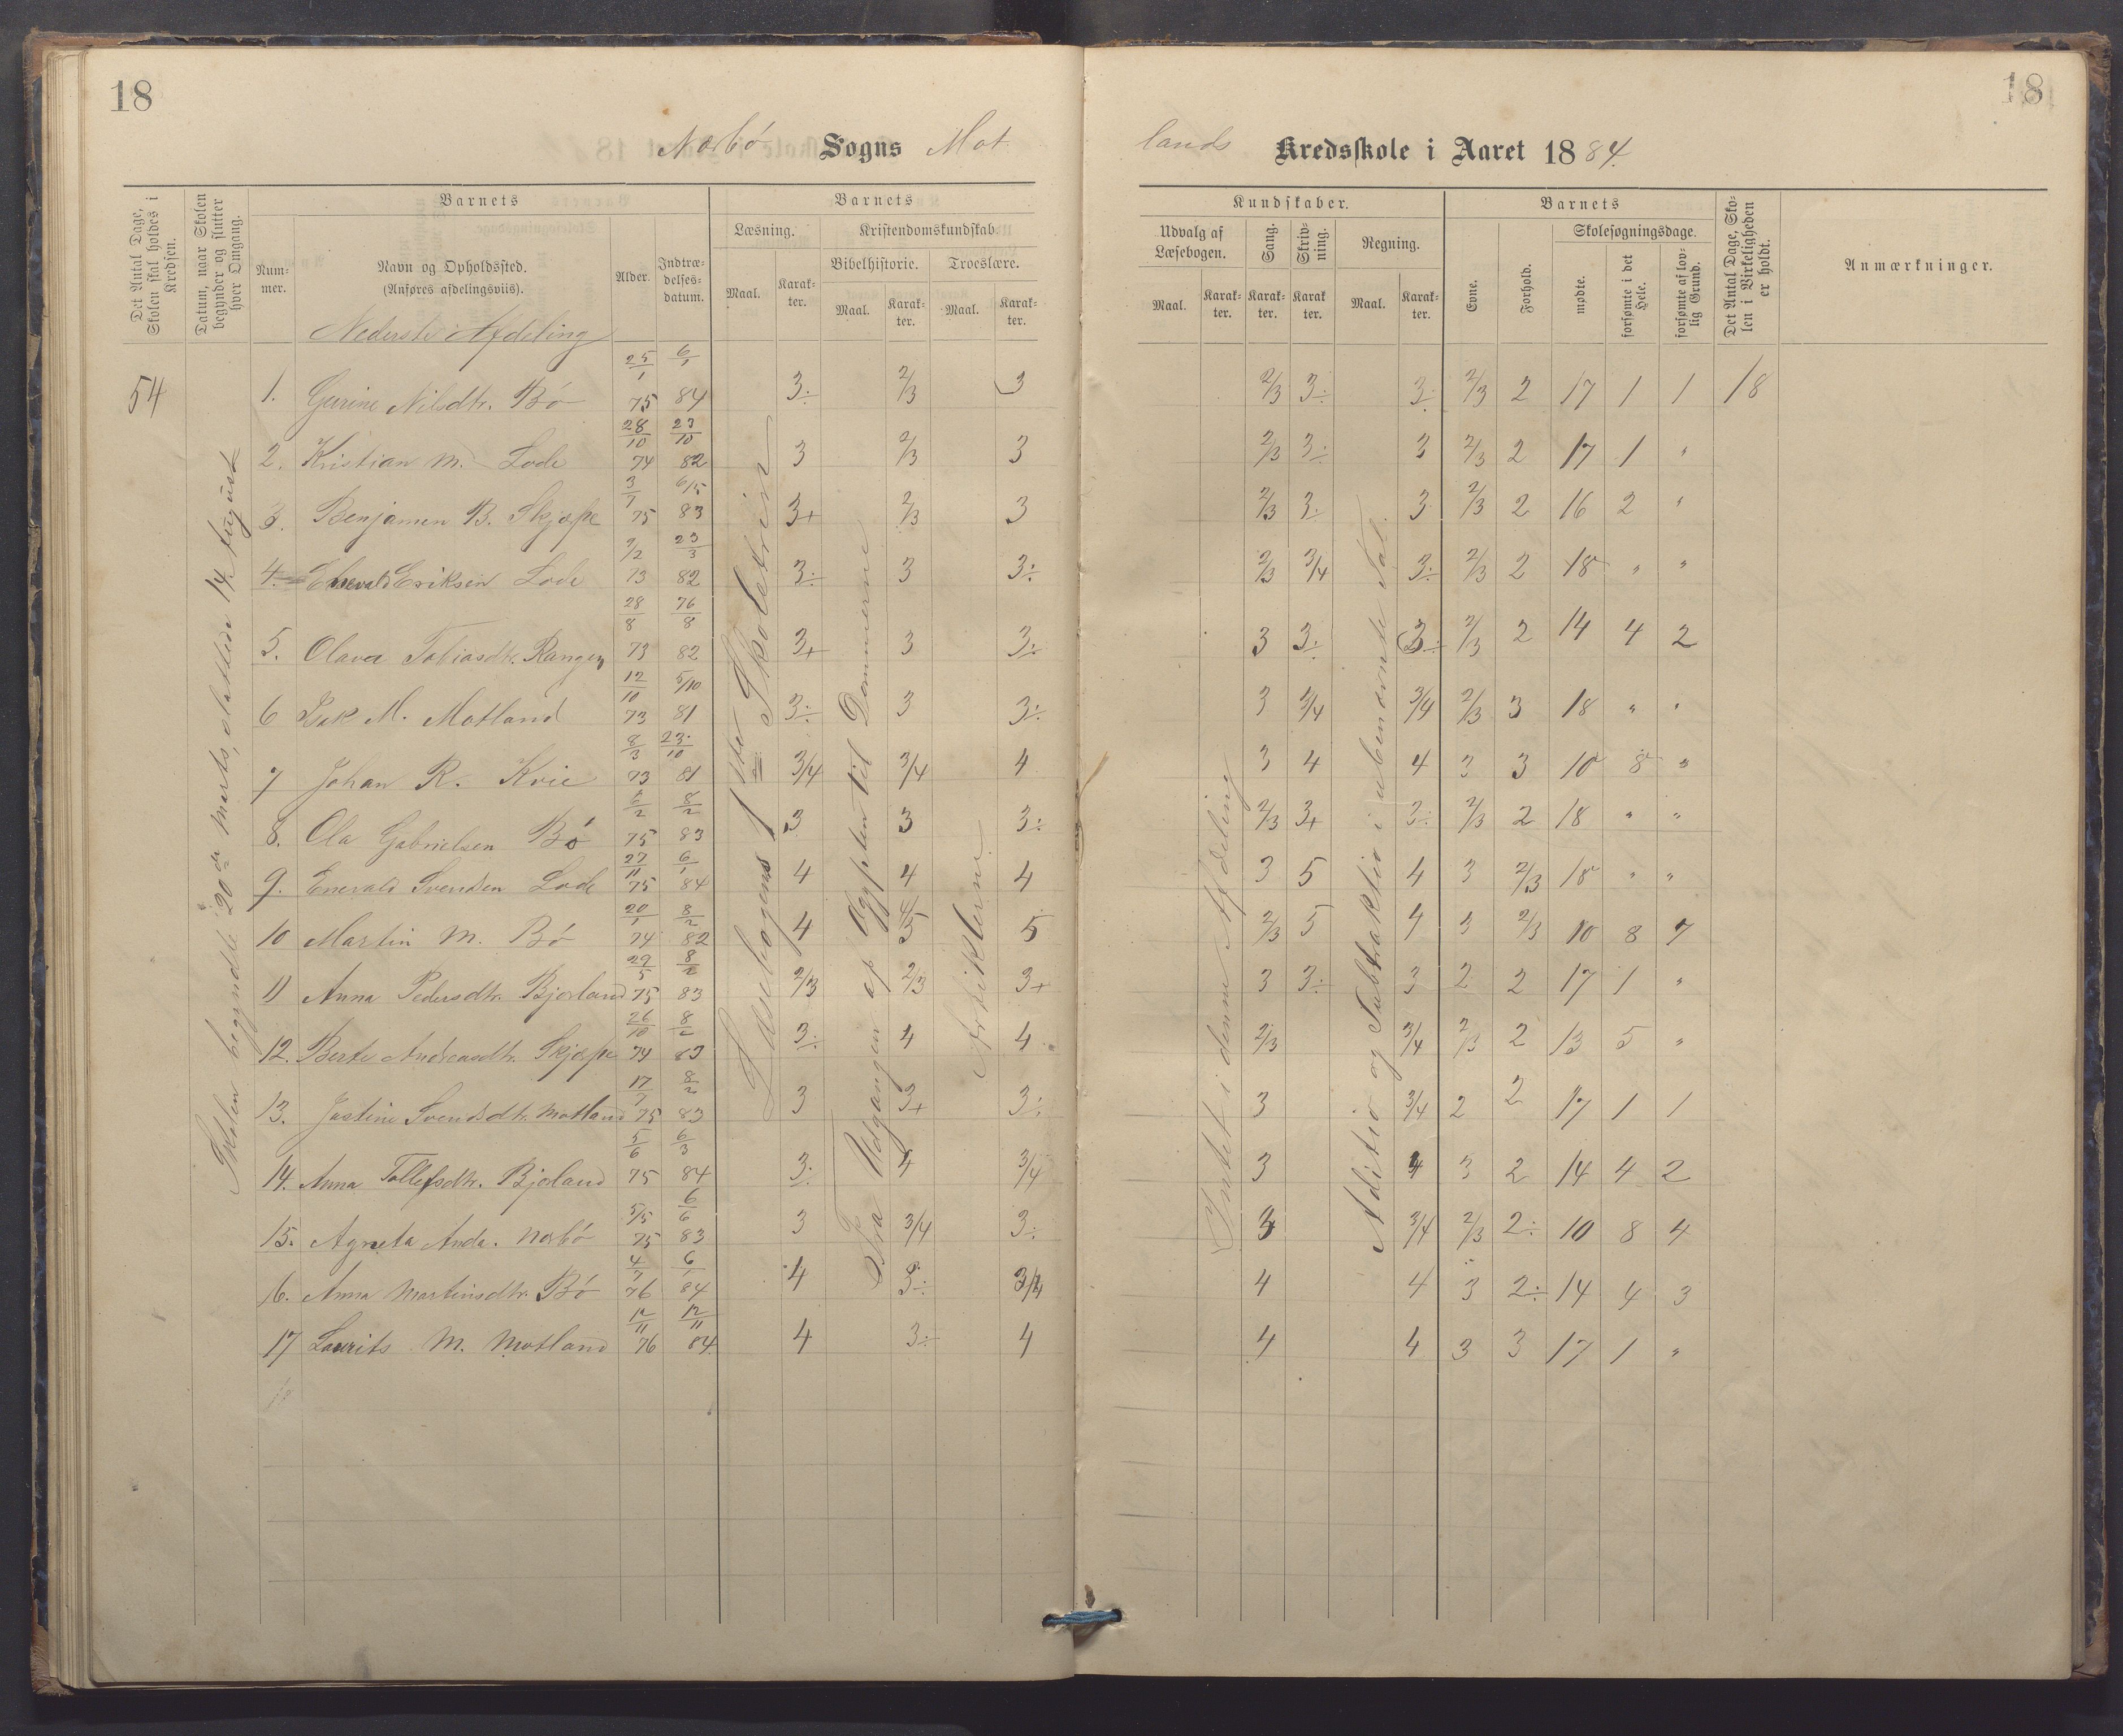 18
18
Nærbø Sogns Mot
lands Kredsskole i Aaret 1884.
Det Antal Dage, Skolen skal holdes i Kredsen.
Datum, naar Skolen begynder og slutter hver Omgang.
Barnets
Nummer.
Navn og Opholdssted.
(Anføres afdelingsviis).
Alder.
Indtrædelsesdatum.
Barnets
Læsning.
Maal.
Karakter.
Kristendomskundskab.
Bibelhistorie.
Maal.
Karakter.
Troeslære.
Maal.
Karakter.
Kundskaber.
Udvalg af Læsebogen.
Maal.
Karakter.
Sang.
Karakter.
Skrivning.
Karakter.
Regning.
Maal.
Karakter.
Barnets
Evne.
Forhold.
Skolesøgningsdage.
mødte.
forsømte i det Hele.
forsømte af lovlig Grund.
Det Antal Dage, Skolen i Virkeligheden er holdt.
Anmærkninger.
Nederste Afdeling
54
Skolen begyndte 20de Marts, sluttede 14. August
Læsebogens 1ste Skoletrin
Fra Udgangen af Ægypten til Dommerne
Artiklerne
Intet i denne Afdeling
Aditio og Subtraktio i ubenævnte Tal.
1. Gurine Nilsdtr. Bø 25/1 75 6/1 84 3÷ 2/3 3 2/3 3÷ 3÷ 2/3 2 17 1 1 18
2. Kristian M. Lode 28/10 74 23/10 82 3 2/3 3 2/3 3÷ 3 2/3 2 17 1 "
3. Benjamen B. Skjæpe 3/7 75 6/5 83 3+ 2/3 3 2/3 3÷ 3 2/3 2 16 2 "
4. Enevald Eriksen Lode 2/2 73 23/3 82 3÷ 3 3÷ 2/3 3/4 3÷ 2/3 2 18 " "
5. Olava Tobiasdtr. Rangen 28/8 73 76/8 82 3+ 3 3÷ 3 3÷ 3÷ 2/3 2 14 4 2
6 Isak M. Motland 12/10 73 5/10 81 3÷ 3 3÷ 3 3/4 3/4 2/3 3 18 " "
7 Johan R. Kvie 8/3 73 23/10 81 3/4 3/4 4 3 4 4 3 3 10 8 "
8. Ola Gabrielsen Bø 6/2 75 8/2 83 3 3 3÷ 2/3 3+ 3÷ 2/3 2 18 " "
9. Enevald Svendsen Lode 27/11 75 6/1 84 4 4 4 3 5 4 3 2/3 18 " "
10 Martin M. Bø 20/1 74 8/2 82 4 5 5 2/3 5 4 3 2/3 10 8 7
11 Anna Pedersdtr. Bjorland 29/5 75 8/2 83 2/3 2/3 3+ 3 3÷ 3 2 2 17 1 "
12. Berte Andreasdtr. Skjæpe 26/10 74 8/2 83 3÷ 4 4 2/3 3/4 2/3 2 13 5 "
13. Justine Svendsdtr. Motland 17/7 75 8/2 83 3 3+ 3÷ 3 3/4 2 2 17 1 1
14. Anna Tollefsdtr. Bjorland 5/6 75 6/3 84 3÷ 4 3/4 3 4 3 2 14 4 2
15. Agneta Anda. Nærbø 5/5 75 6/6 83 3 3/4 3÷ 3 3/4 2/3 2÷ 10 8 4
16. Anna Martinsdtr. Bø 4/7 76 6/1 84 4 3÷ 3/4 4 4 3 2÷ 14 4 3
17 Laurits M. Motland 12/11 76 12/11 84 4 3÷ 4 4 4 3 3 17 1 "